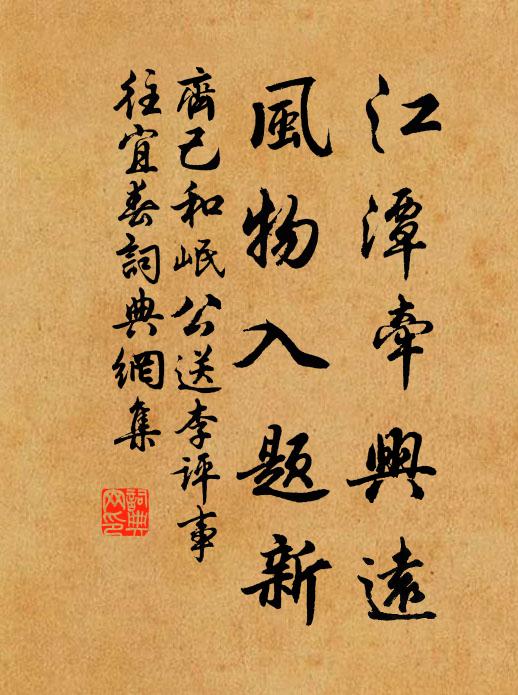 江潭牽興遠
風物入题新
齊己和岷公送李评事
往宜春詞典網集
詞典网印